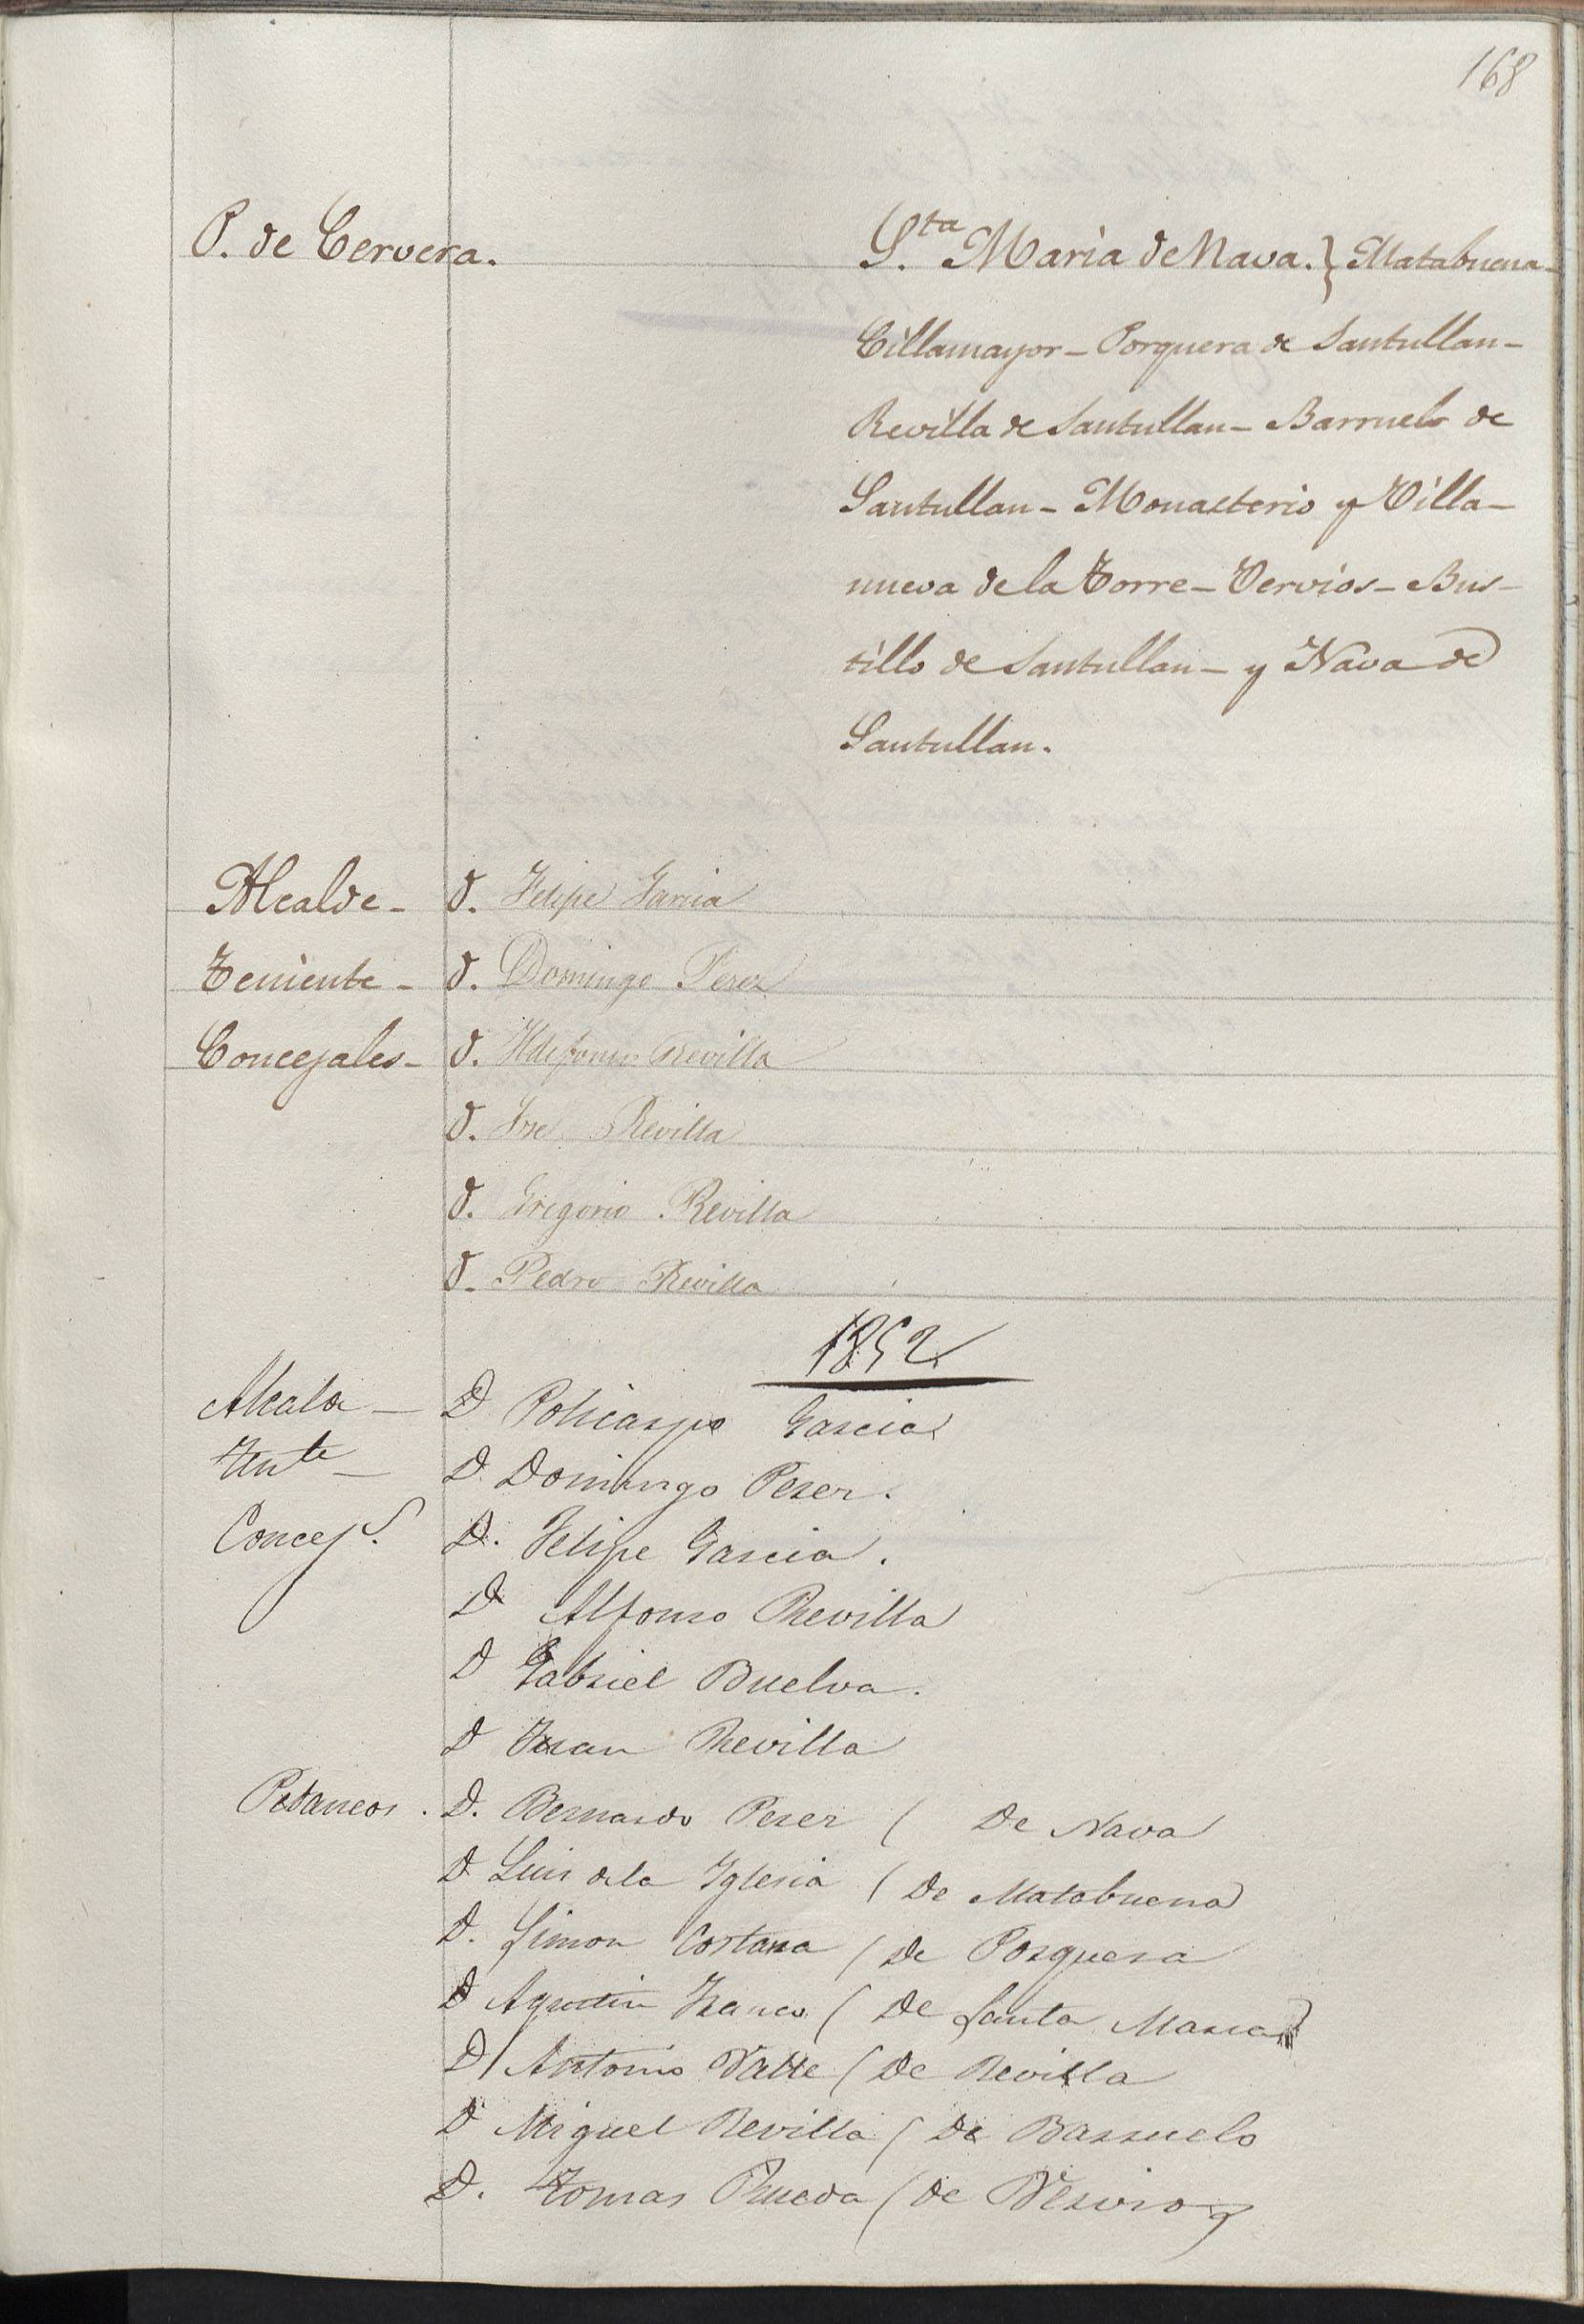 168
P. de Cervera. S.ta Maria de Nava. } Matabuena -
Cillamayor - Porquera de Santullan -
Revilla de Santullan - Barruelo de
Santullan - Monasterio y Villa-
nueva de la Torre - Verviòs - Bus-
tillo de Santullan - y Nava de
Santullan.
Alcalde - D. Felipe Garcia
Teniente - D. Domingo Perez
Concejales - D. Ildefonso Revilla
D. Jose Revilla
D. Gregorio Revilla
D. Pedro Revilla
1852
Alcalde - D Policarpo Garcia
Tente - D. Domingo Perez.
Concejs. D. Felipe Garcia.
D Alfonso Revilla
D Gabriel Buelva.
D Juan Revilla
Pedaneos. D. Bernardo Perez ( De Nava
D Luis de la Iglesia ( De Matabuena
D. Simon Costana ( De Porquera
D Agustin Franco ( De Santa Maria
D Antonio Valle ( De Revilla
D Miguel Revilla ( De Barruelo
D. Tomas Rueda ( de Vervios